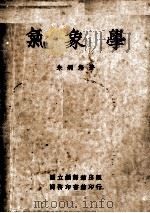 氣象學
朱炳海著
國立編譯館出版
商務印書館印行